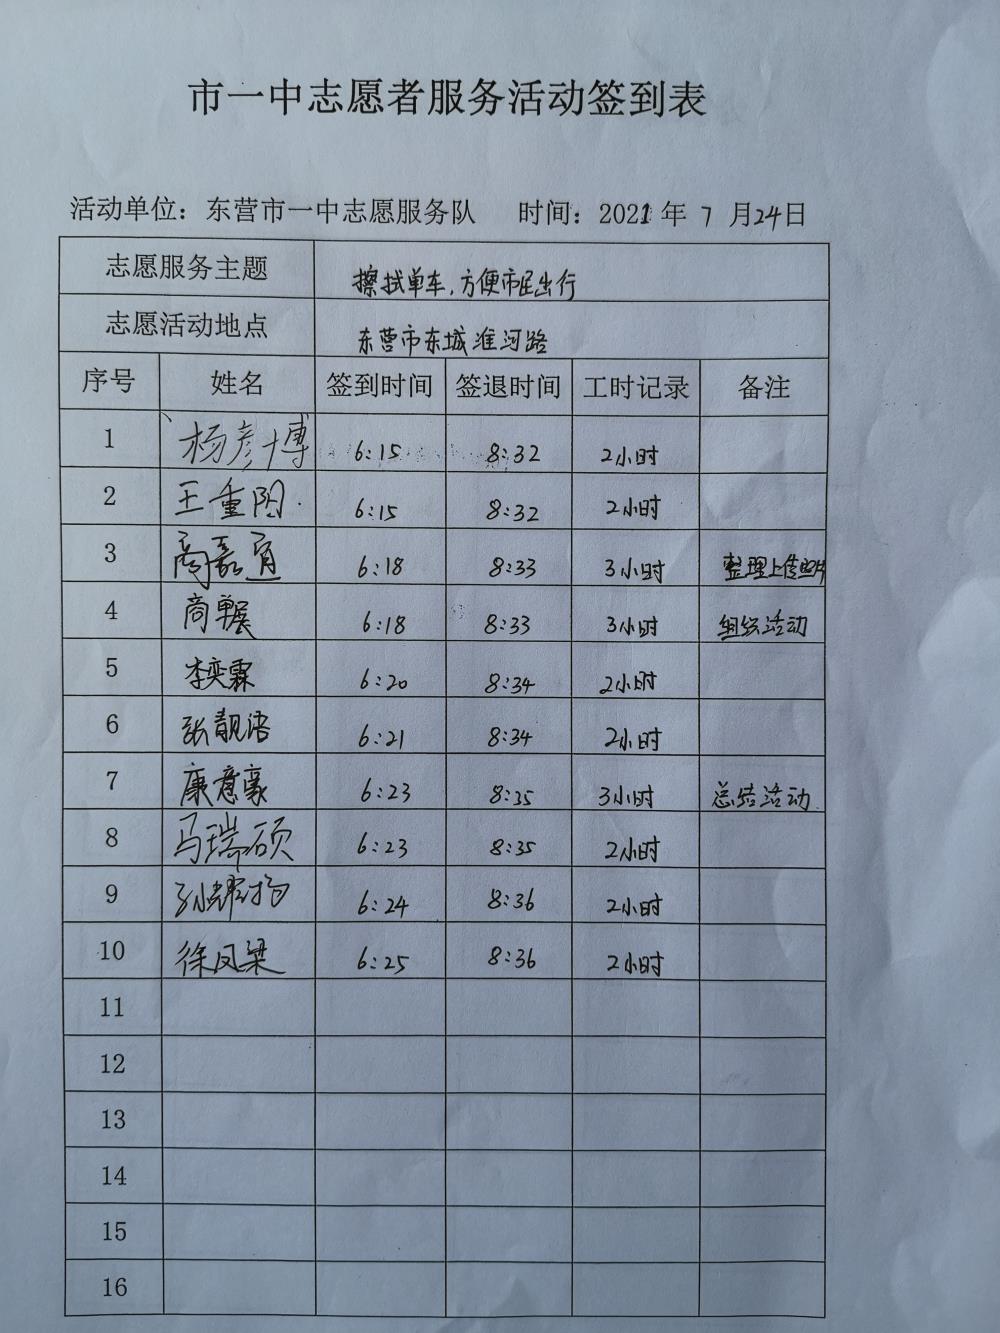 市一中志愿者服务活动签到表
活动单位：东营市一中志愿服务队 时间：2021 年 7 月 24 日
志愿服务主题 擦拭单车，方便市民出行
志愿活动地点 东营市东城淮河路
序号 姓名 签到时间 签退时间 工时记录 备注
1 杨彦博 6:15 8:32 2小时
2 王重阳 6:15 8:32 2小时
3 商嘉通 6:18 8:33 3小时 整理上传照片
4 商 6:18 8:33 3小时 组织活动
5 李奕霖 6:20 8:34 2小时
6 张靓语 6:21 8:34 2小时
7 康意豪 6:23 8:35 3小时 总结活动
8 马瑞硕 6:23 8:35 2小时
9 孙耀扬 6:24 8:36 2小时
10 徐凤梁 6:25 8:36 2小时
11
12
13
14
15
16